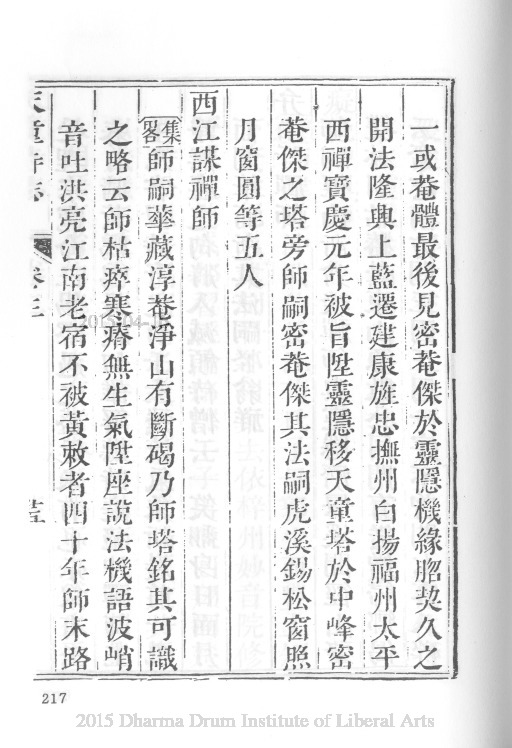 一或菴體最後見密菴傑於靈隱機緣脗契久之
開法隆興上藍遷建康旌忠撫州白揚福州太平
西禪寶慶元年被旨陞靈隱移天童塔於中峰密
菴傑之塔旁師嗣密菴傑其法嗣虎溪錫松窗照
月窗圓等五人
西江謀禪師
集畧師嗣華藏淳菴淨山有斷碣乃師塔銘其可識
之略云師枯瘁寒瘠無生氣陞座說法機語波峭
音吐洪亮江南老宿不被黃敕者四十年師末路
天童寺志 卷三
217
2015 Dharma Drum Institute of Liberal Arts